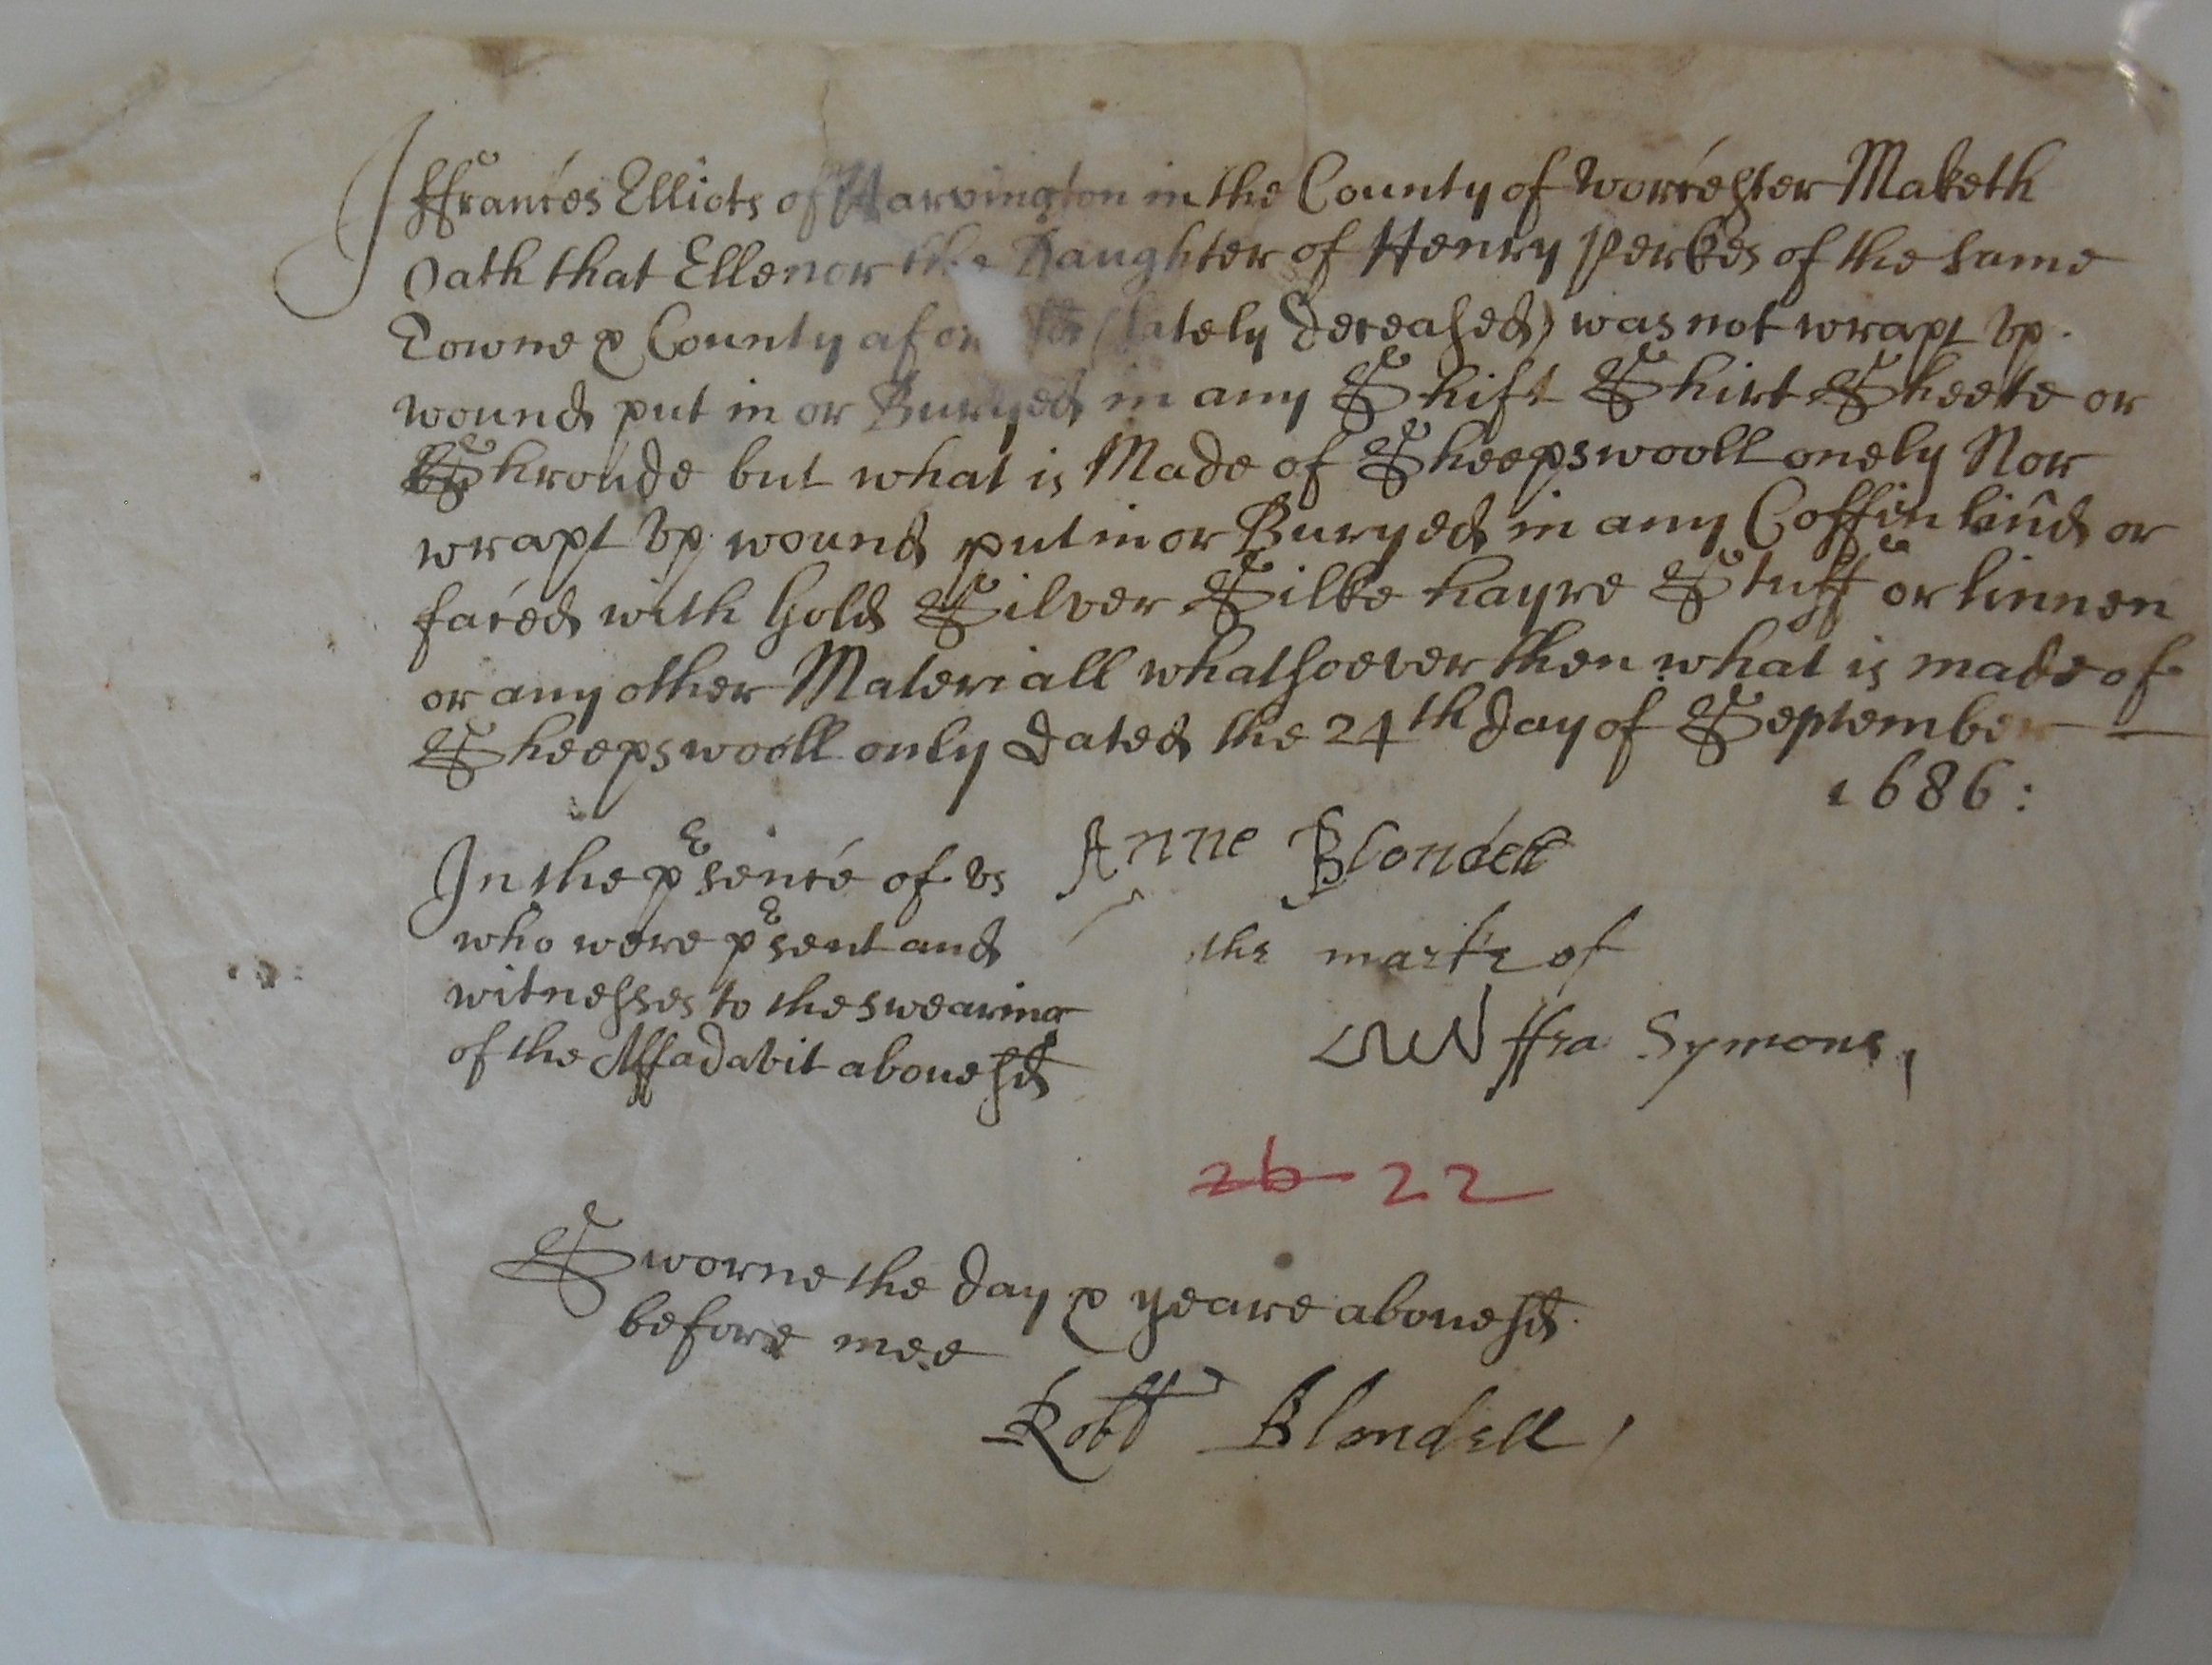 I ffrances Elliots of Harvington in the County of Worcester Maketh
Oath that Ellenor the Daughter of Henry Perkes of the same
Towne & County afor (lately deceased) was not wrapt vp
wound put in or Buryed in any Shift Shirt Sheete or
Shroude but what is Made of Sheepswooll onely Nor
wrapt vp wound put in or Buryed in any Coffin lind or
faced with Gold Silver Silke hayre Stuff or linnen
or any other Materiall whatsoever then what is made of
Sheepswooll only dated the 24th day of September
1686:
In the psence of vs
who were psent and
witnesses to the swearing
of the Affadavit aboue sd
Anne Blondell
the marke of
ffra Symons
26 22
Sworne the day & yeare aboue sd
before mee
Robt Blondell